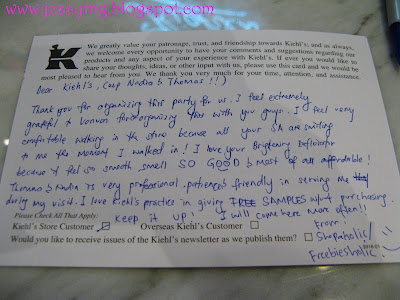 www.jzzaqing.blogspot.com
K
We greatly value your patronage, trust, and friendship towards Kiehl's, and as always,
we welcome every opportunity to have your comments and suggestions regarding our
products and any aspect of your experience with Kiehl's. If ever you would like to
share your thoughts, ideas, or other input with us, please use this card and we would be
most pleased to hear from you. We thank you very much for your time, attention, and assistance.
Dear Kiehl's, (esp Nadia & Thomas!!)
Thank you for organising this party for us. I feel extremely
grateful to for organising this with you guys. I feel very
comfortable walking in the store because all your SA are smiling
to me the moment I walked in! I love your Brightening Exfoliator
because it feel so smooth, smell SO GOOD & most of all affordable!
Thomas & Nadia is very professional, patience & friendly in serving me
during my visit. I love Kiehl's practice in giving FREE SAMPLES w/out purchasing.
Keep it up! I will come here more often!!
Please Check All That Apply:
Kiehl's Store Customer Overseas Kiehl's Customer
From:
Would you like to receive issues of the Kiehl's newsletter as we publish them?
Shopaholic/
Freebiesholic!